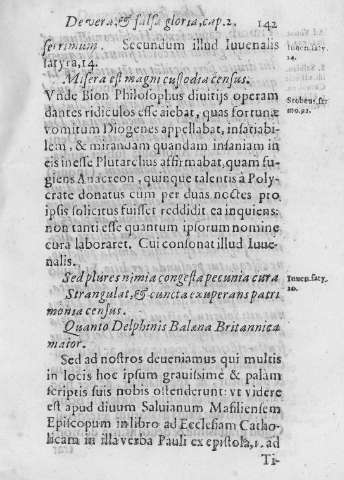 De vera, & falsa gloria, cap. 2. 142
serrimum. Secundum illud Iuuenalis
satyra, 14.
Iuuen. saty.
14.
Misera est magni custodia census.
Vnde Bion Philosophus diuitijs operam
dantes ridiculos esse aiebat, quas fortunæ
Stobeus, ser
mo. 91.
vomitum Diogenes appellabat, insatiabi-
lem, & mirandam quandam insaniam in
eis inesse Plutarchus affirmabat, quam fu-
giens Anacreon, quinque talentis à Poly-
crate donatus cum per duas noctes pro
ipsis solicitus fuisset reddidit ea inquiens:
non tanti esse quantum ipsorum nomine
cura laboraret. Cui consonat illud Iuue-
nalis.
Sed plures nimia congesta pecunia cura
Iuuen. saty.
10.
Strangulat, & cuncta exuperans patri
monia census.
Quanto Delphinis Balæna Britannica
maior.
Sed ad nostros deueniamus qui multis
in locis hoc ipsum grauissimè & palam
scriptis suis nobis ostenderunt: vt videre
est apud diuum Saluianum Masiliensem
Episcopum in libro ad Ecclesiam Catho-
licam in illa verba Pauli ex epistola, 1. ad
Ti-